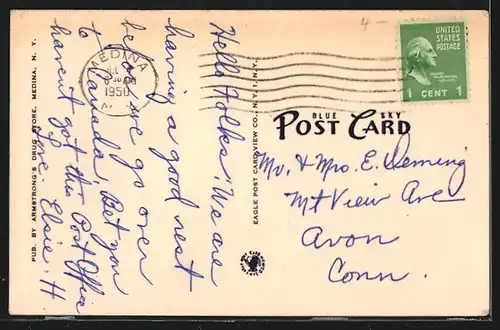 4-
UNITED
STATES
POSTAGE
1 CENT 1
MEDINA
1950
N.
Hello Folks! We are
having a good rest
before we go over
to Canada. Bet you
havent got this Post Office
Love. Elsie. H
PUB. BY ARMSTRONG'S DRUG STORE, MEDINA, N. Y.
EAGLE POST CARD VIEW CO., N. Y. 1, N. Y.
BLUE SKY
POST CARD
Mr. & Mrs. E. Deming
Mt View Ave
Avon
Conn.